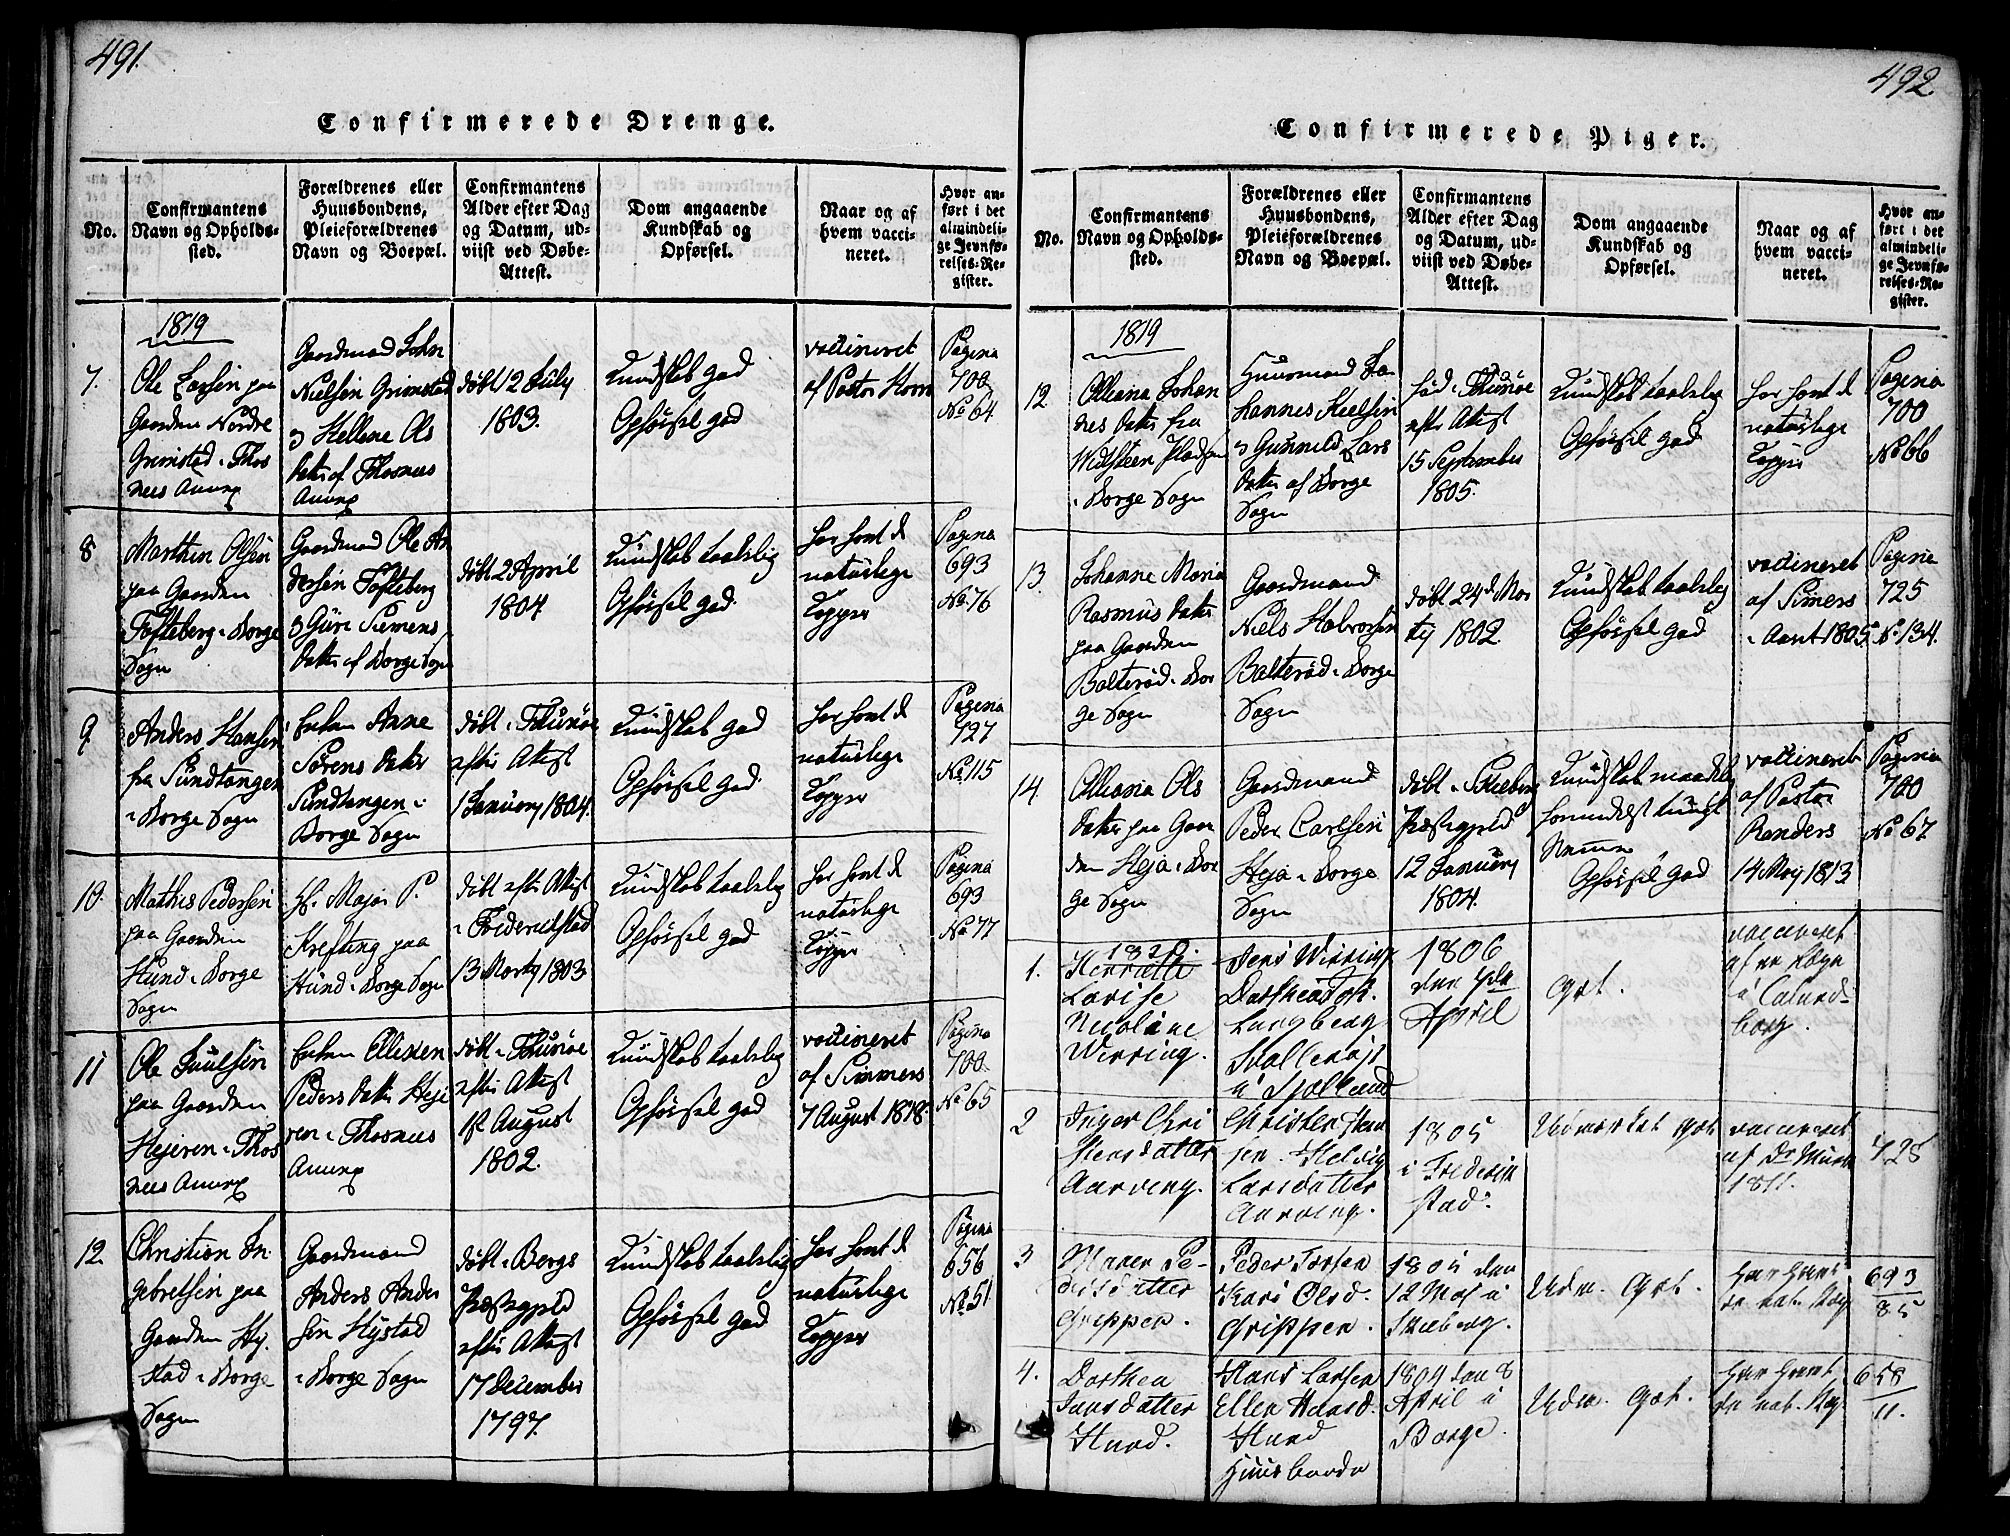 491.
Confirmerede Drenge.
No.
Confirmantens
Navn og Opholds-
sted.
Forældrenes eller
Huusbondens,
Pleieforældrenes
Navn og Boepæl.
Confirmantens
Alder efter Dag
og Datum, ud-
viist ved Døbe-
Attest.
Dom angaaende
Kundskab og
Opførsel.
Naar og af
hvem vacci-
neret.
Hvor an-
ført i det
almindeli-
ge Jevnfø-
relses-Re-
gister.
1819
7.
Ole Larsen paa
Gaarden Nordre
Grimstad i Thos
nees Annex
Gaardmand John
Nielsen Grimstad
og Hellene Ols
datter af Thosnees
Annex
døbt 12 July
1803.
Kundskab god
Opførsel god
vaccineret
af Pastor Horn
Pagina
700
No 64
8
Marthin Olsen
paa Gaarden
Tofteberg i Borge
Sogn
Gaardmand Ole An
dersen Tofteberg
og Guri Siemens
datter af Borge Sogn
døbt 2 April
1804
Kundskab taalelig
Opførsel god
har havt de
naturlige
Kopper
Pagina
693
No 76
9
Anders Hansen
fra Sundtangen
i Borge Sogn
Enken Anne
Sørens datter
Sundtangen i
Borge Sogn
døbt i Thunøe
efter Attest
1 January 1804.
Kundskab god
Opførsel god
har havt de
naturlige
Kopper
Pagina
727
No 115
10.
Mathis Pedersen
paa Gaarden
Hund i Borge
Sogn
Hr. Major P.
Krefting paa
Hund i Borge Sogn
døbt efter Attest
i Fredericstad
13 Marty 1803
Kundskab taalelig
Opførsel god
har havt de
naturlige
Kopper
Pagina
693
No 77
11
Ole Poulsen
paa Gaarden
Hejeren i Thos
nees Annex
Enken Ellisten
Peders datter Heje
ren i Thosnees
Annex
døbt i Thunøe
efter Attest
1st August
1802.
Kundskab taalelig
Opførsel god
vaccineret
af Simmers
7 August 1818
Pagina
700
No 65
12.
Christian In
gebretsen paa
Gaarden Hy
stad i Borge
Sogn
Gaardmand
Anders Ander
sen Hystad
i Borge Sogn
døbt i Bergs
Præstegield
efter Attest
17 December
1797.
Kundskab taalelig
Opførsel god
har havt de
naturlige
Kopper
Pagina
656
No 51
492
Confirmerede Piger.
No.
Confirmantens
Navn og Opholds-
sted.
Forældrenes eller
Huusbondens,
Pleieforældrenes
Navn og Boepæl.
Confirmantens
Alder efter Dag
og Datum, ud-
viist ved Døbe-
Attest.
Dom angaaende
Kundskab og
Opførsel.
Naar og af
hvem vacci-
neret.
Hvor an-
ført i det
almindeli-
ge Jevnfø-
relses-Re-
gister.
1819
12
Olleana Johan
nes datter fra
Pladsen
i Borge Sogn
Huusmand Jo
hannes Neelsen
og Gunnild Lars
datter af Borge
Sogn
Thunøe
efter Attest
15 September
1805.
Kundskab taalelig
Opførsel god
har havt de
naturlige
Kopper
Pagina
700
No 66
13.
Johanne Maria
Rasmus datter
paa Gaarden
Balterød i Bor
ge Sogn
Gaardmand
Niels Halvorsen
Balterød i Borge
Sogn
døbt 24de Mar
ty 1802
Kundskab taalelig
Opførsel god
vaccineret
af Simers
i Aaret 1805
Pagina
725
No 134.
14
Olleana Ols
datter paa Gaar
den Heja i Bor
ge Sogn
Gaardmand
Peder Carlsen
Heja i Borge
Sogn
døbt i Skieberg
Præstegield
12 January
1804.
Kundskab maadelig
formedelst tungt
Nemme
Opførsel god
vaccineret
af Pastor
Randers
14 May 1813
Pagina
700
No 67
1820.
1.
Henriette
Lovise
Nicoline
Wirring.
Jens Wirring
Dorthea
Langberg
i Sjælland
1806
den 4de
April
Got.
vaccineret
af en Læge
i Calund-
borg.
2
Inger Chri
stensdatter
Aarving.
Christen Han
sen. Helvig
Larsdatter
Aarving.
1805
i Frederik
stad.
Udmærket got
vaccineret
af Dr Munk
1811.
728
3
Maren Pe-
dersdatter
Grippen.
Peder Torsen
Kari Olsd.
Grippen.
1805 den
12 Mai i
Skieberg.
Udm. Got.
har havt
de nat. Kop
693
85
4.
Dorthea
Hansdatter
Hund.
Hans Larsen
Ellen Hansd.
Hund
Huusbonde
1804 den 8
April i
Borge.
Udm. Got.
har havt
de nat. Kop.
658
11.